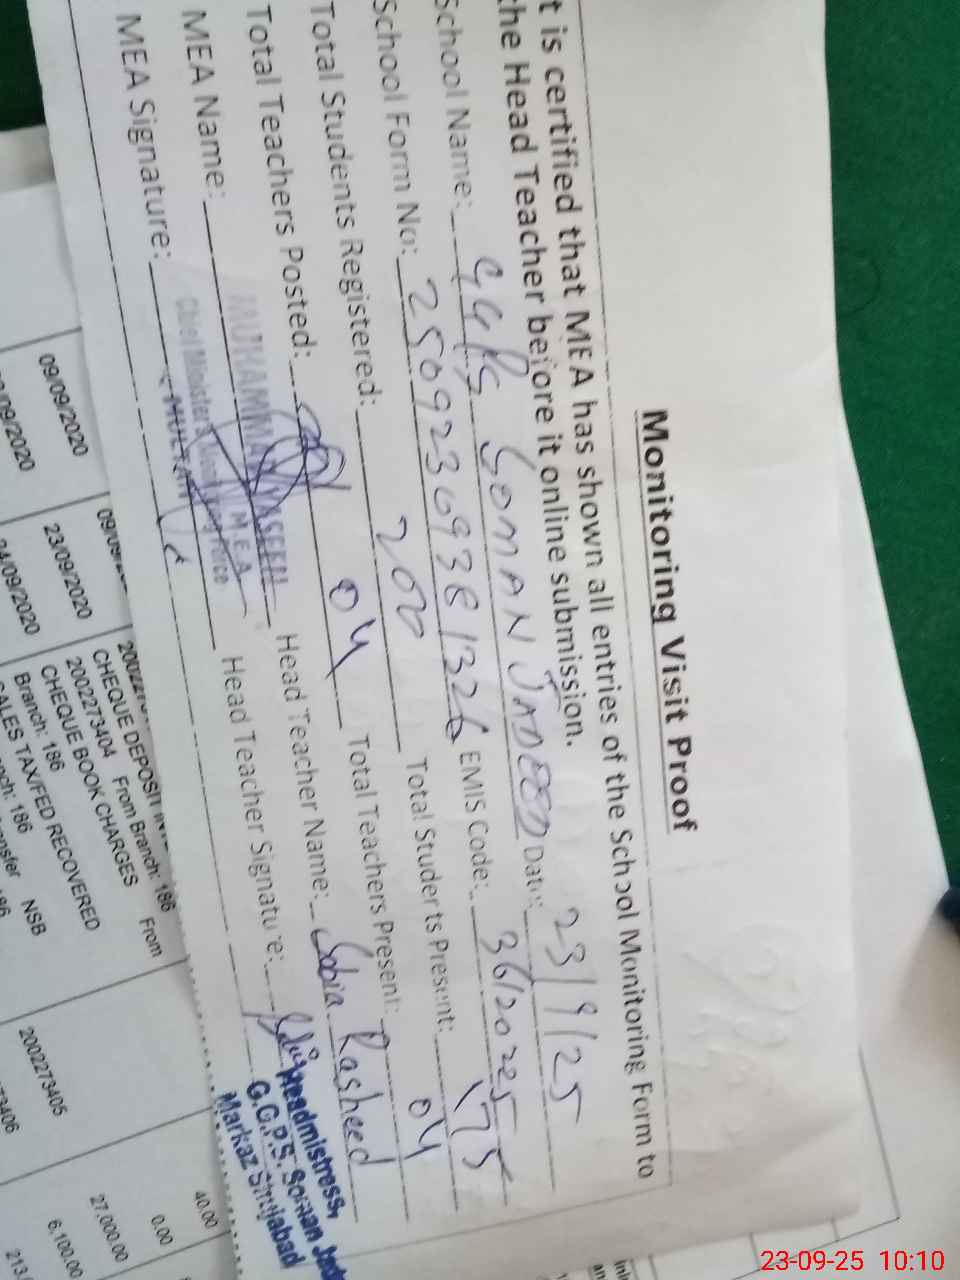 Monitoring Visit Proof
t is certified that MEA has shown all entries of the School Monitoring Form to
the Head Teacher before it online submission.
School Name: GGPS SOMAN JADEED Date: 23/9/25
School Form No: EMIS Code: 36120225
Total Students Registered: 200 Total Students Present: 175
Total Teachers Posted: 04 Total Teachers Present: 04
MEA Name: MUHAMMAD YASEEN Head Teacher Name: Sobia Rasheed
MEA Signature: Head Teacher Signature:
M.E.A
Chief Minister's Monitoring Force
MULTAN
Headmistress,
G.G.P.S. Soman
Markaz Shujabad
09/09/2020
09/2020
23/09/2020
24/09/2020
CHEQUE DEPOSIT
2002273404 From Branch: 186 From
CHEQUE BOOK CHARGES
Branch: 186
SALES TAX/FED RECOVERED
186 NSB
2002273405
40.00
0.00
27,000.00
6,100.00
213.
23-09-25 10:10